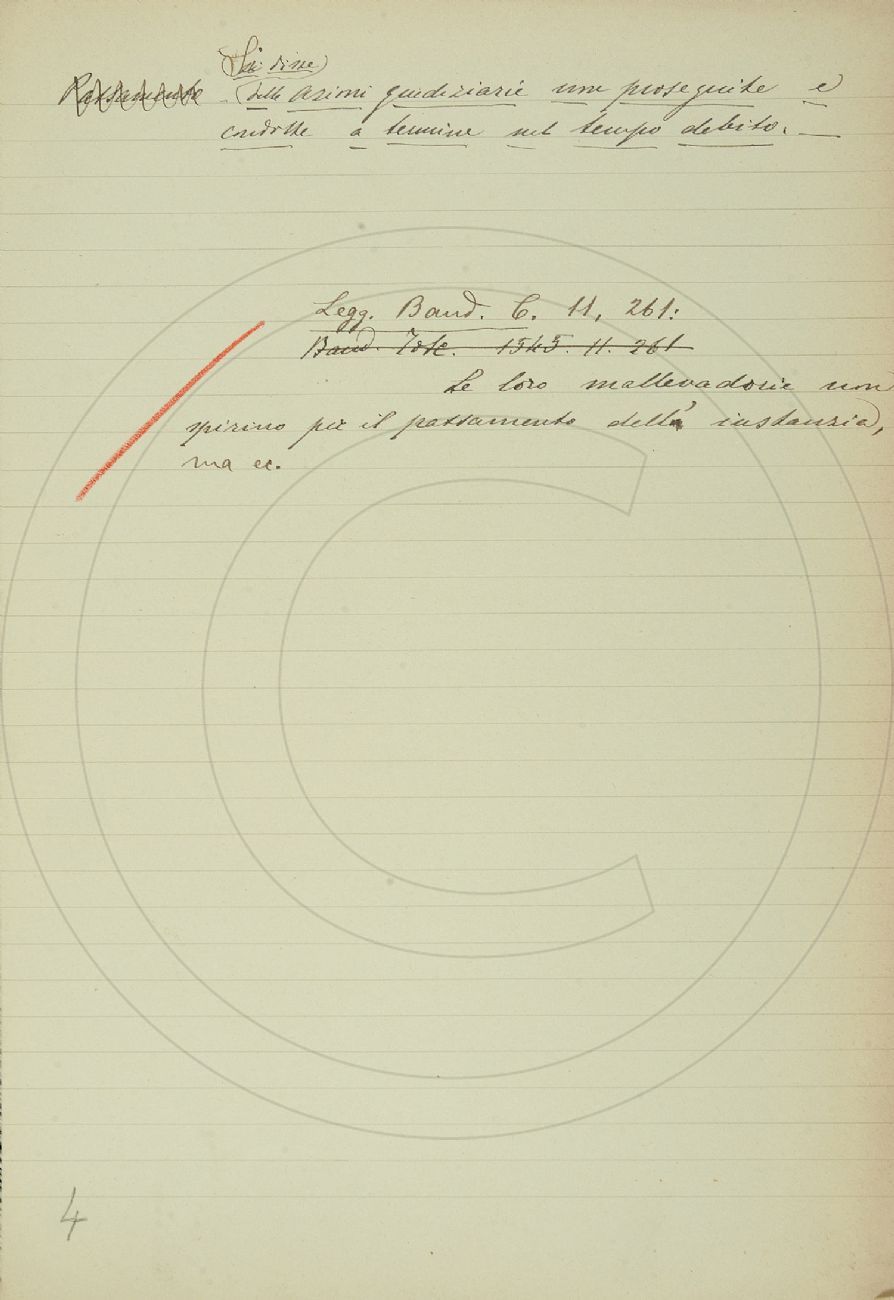 Si disse
Passamento delle azioni giudiziarie non proseguite e
condotte a termine nel tempo debito. —
Legg. Band. C. 11, 261:
Band. Tosc. 1545. 11. 261
Le loro mallevadorie non
spirino per il passamento dell' instanzia,
ma ec.
4